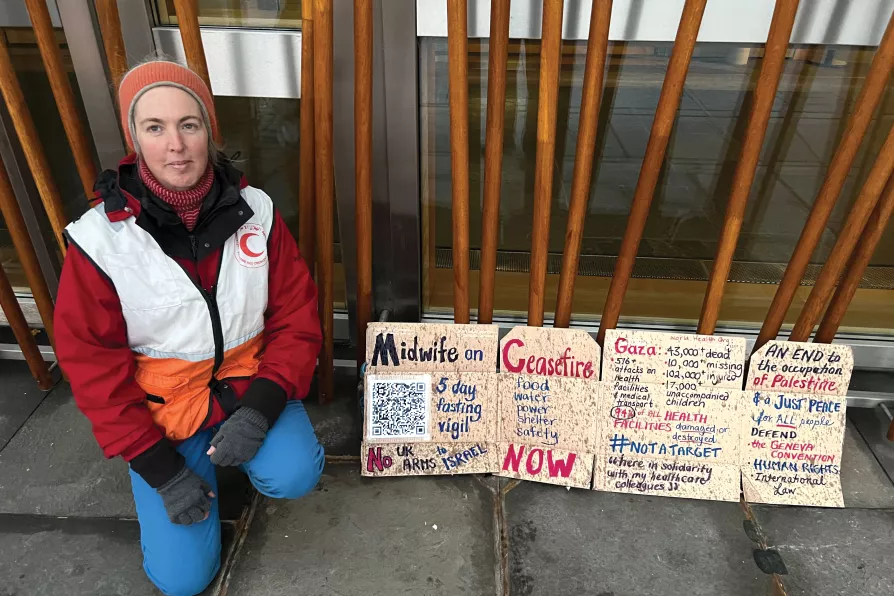 Midwife on
5 day
fasting
vigil
No UK ARMS to ISRAEL
Ceasefire
food
water
power
shelter
safety
NOW
World Health Org
Gaza: 43,000+ dead
576+ ~10,000 missing
attacks on 102,000+ injured
health
facilities 17,000
& medical unaccompanied
transport children
94% of ALL HEALTH
FACILITIES damaged or
destroyed
#NOTATARGET
where in solidarity
with my healthcare
colleagues
AN END to the
occupation
of Palestine
& a JUST PEACE
for ALL people
DEFEND
the GENEVA
CONVENTION
HUMAN RIGHTS
International
Law